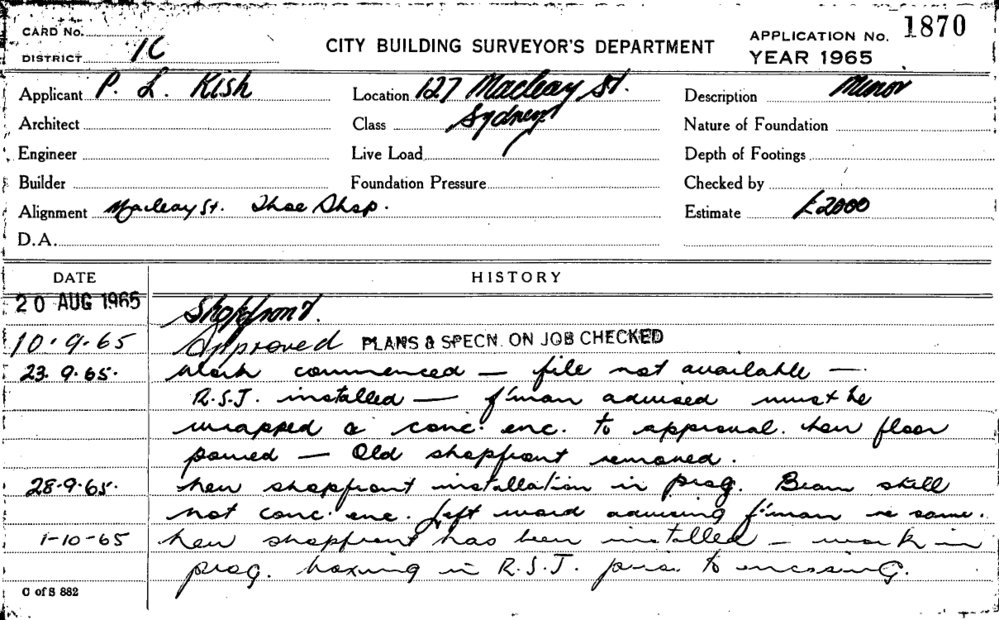 CARD No.
DISTRICT 1C
CITY BUILDING SURVEYOR'S DEPARTMENT
APPLICATION No. 1870
YEAR 1965
Applicant P. L. Kish
Location 127 Macleay St.
Sydney
Description Minor
Architect
Class
Nature of Foundation
Engineer
Live Load
Depth of Footings
Builder
Foundation Pressure
Checked by
Alignment Macleay St. Shoe Shop.
Estimate £2000
D.A.
DATE HISTORY
20 AUG 1965 Shopfront.
10.9.65 Approved PLANS & SPECN. ON JOB CHECKED
23.9.65. Work commenced — file not available —
R.S.J. installed — f'man advised must be
wrapped & conc. enc. to approval. New floor
poured — Old shopfront removed.
28.9.65. New shopfront installation in prog. Beam still
not conc. enc. Left word advising f'man re same.
1-10-65 New shopfront has been installed — work in
prog. boxing in R.S.J. prior to encasing.
C of S 882